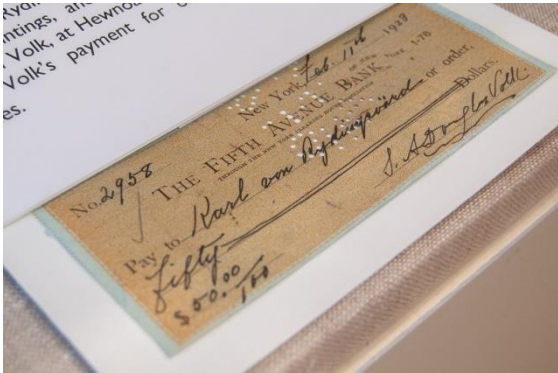 ntings, and
Volk, at Hewno
Volk's payment for
es.
New York, Feb. 11th 1923
No. 2958
THE FIFTH AVENUE BANK
OF NEW YORK 1-76
Pay to Karl von Rydingsvärd or order,
Fifty Dollars.
$50.00/100 S. A Douglas Volk